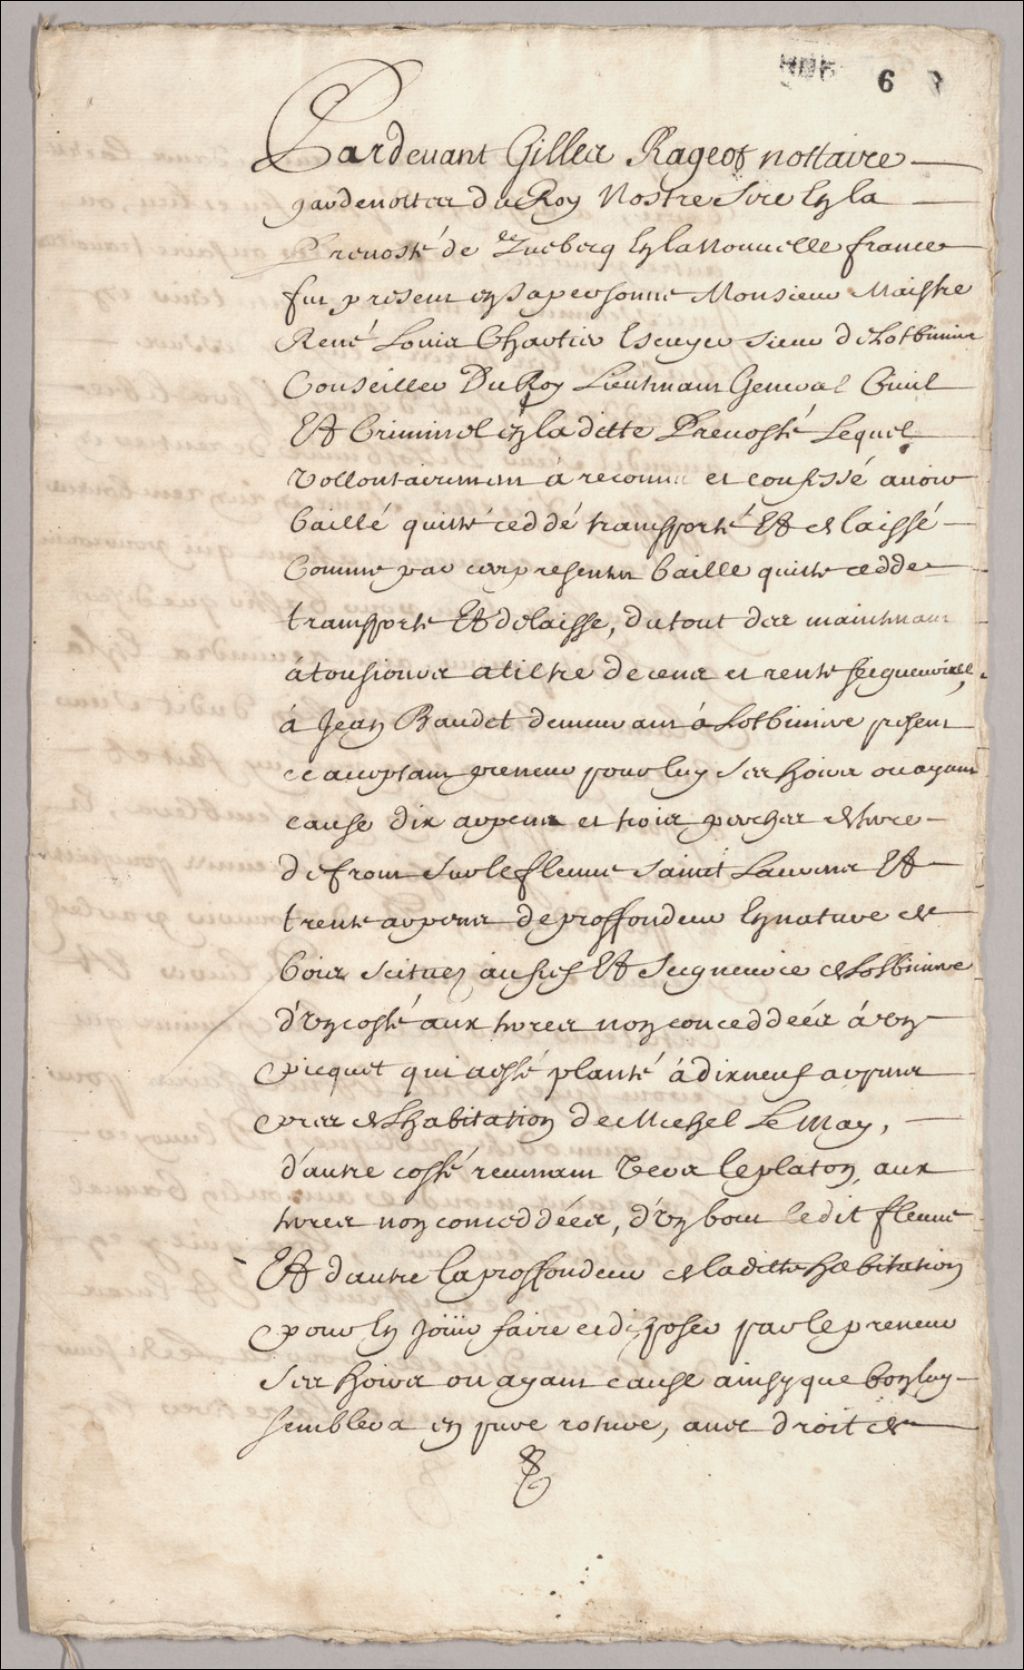 6
Pardevant Gilles Rageot nottaire
gardenottes du Roy Nostre Sire En la
Prevosté de Quebecq En la Nouvelle france
fut present en sa personne Monsieur Maistre
René Louis Chartier Escuyer sieur de Lotbiniere
Conseiller Du Roy Lieutenant General Civil
Et Criminel en la ditte Prevosté Lequel
Vollontairement à reconnu et confessé avoir
baillé quitté ceddé transporté Et delaissé
Comme par ces presentes baille quitte cedde
transporte Et delaisse, du tout des maintenant
à tousiours a tiltre de cens et rente seigneurialle,
à Jean Baudet demeurant à Lotbiniere present
ce acceptant preneur pour luy ses hoirs ou ayant
cause dix arpens et trois perches de terre
de front sur le fleuve Sainct Laurens Et
trente arpens de proffondeur En nature de
bois scituez au fief Et Seigneurie de Lotbiniere
d'un costé aux terres non conceddéés à un
picquet qui a esté planté à dix neuf arpens
pres de L'habitation de Michel Le May,
d'autre costé revenant Vers le platon, aux
terres non conceddéés, d'un bout ledit fleuve
Et dautre la proffondeur de la ditte habitation
pour En Joüir faire et disposer par le preneur
ses hoirs ou ayant cause ainsy que bon luy
semblera en pure roture, avec droit de